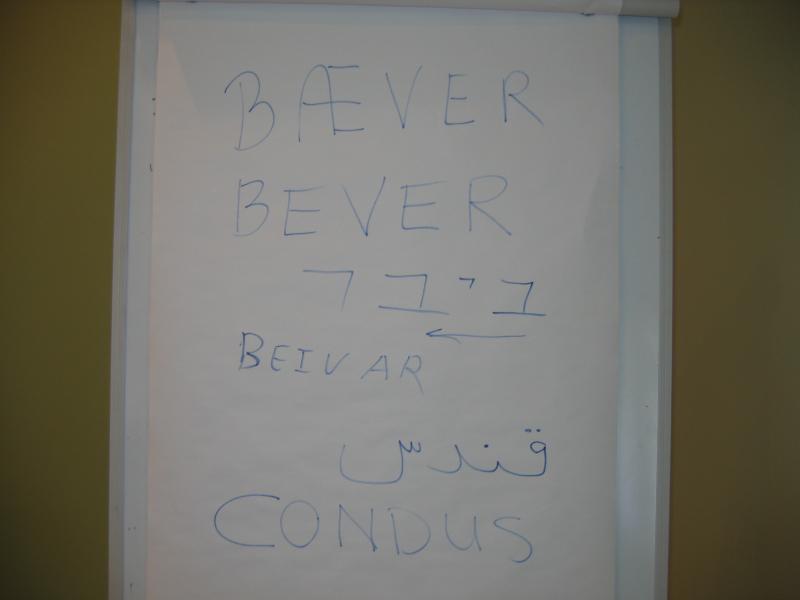 BÆVER
BEVER
ביבר
BEIVAR
قندس
CONDUS